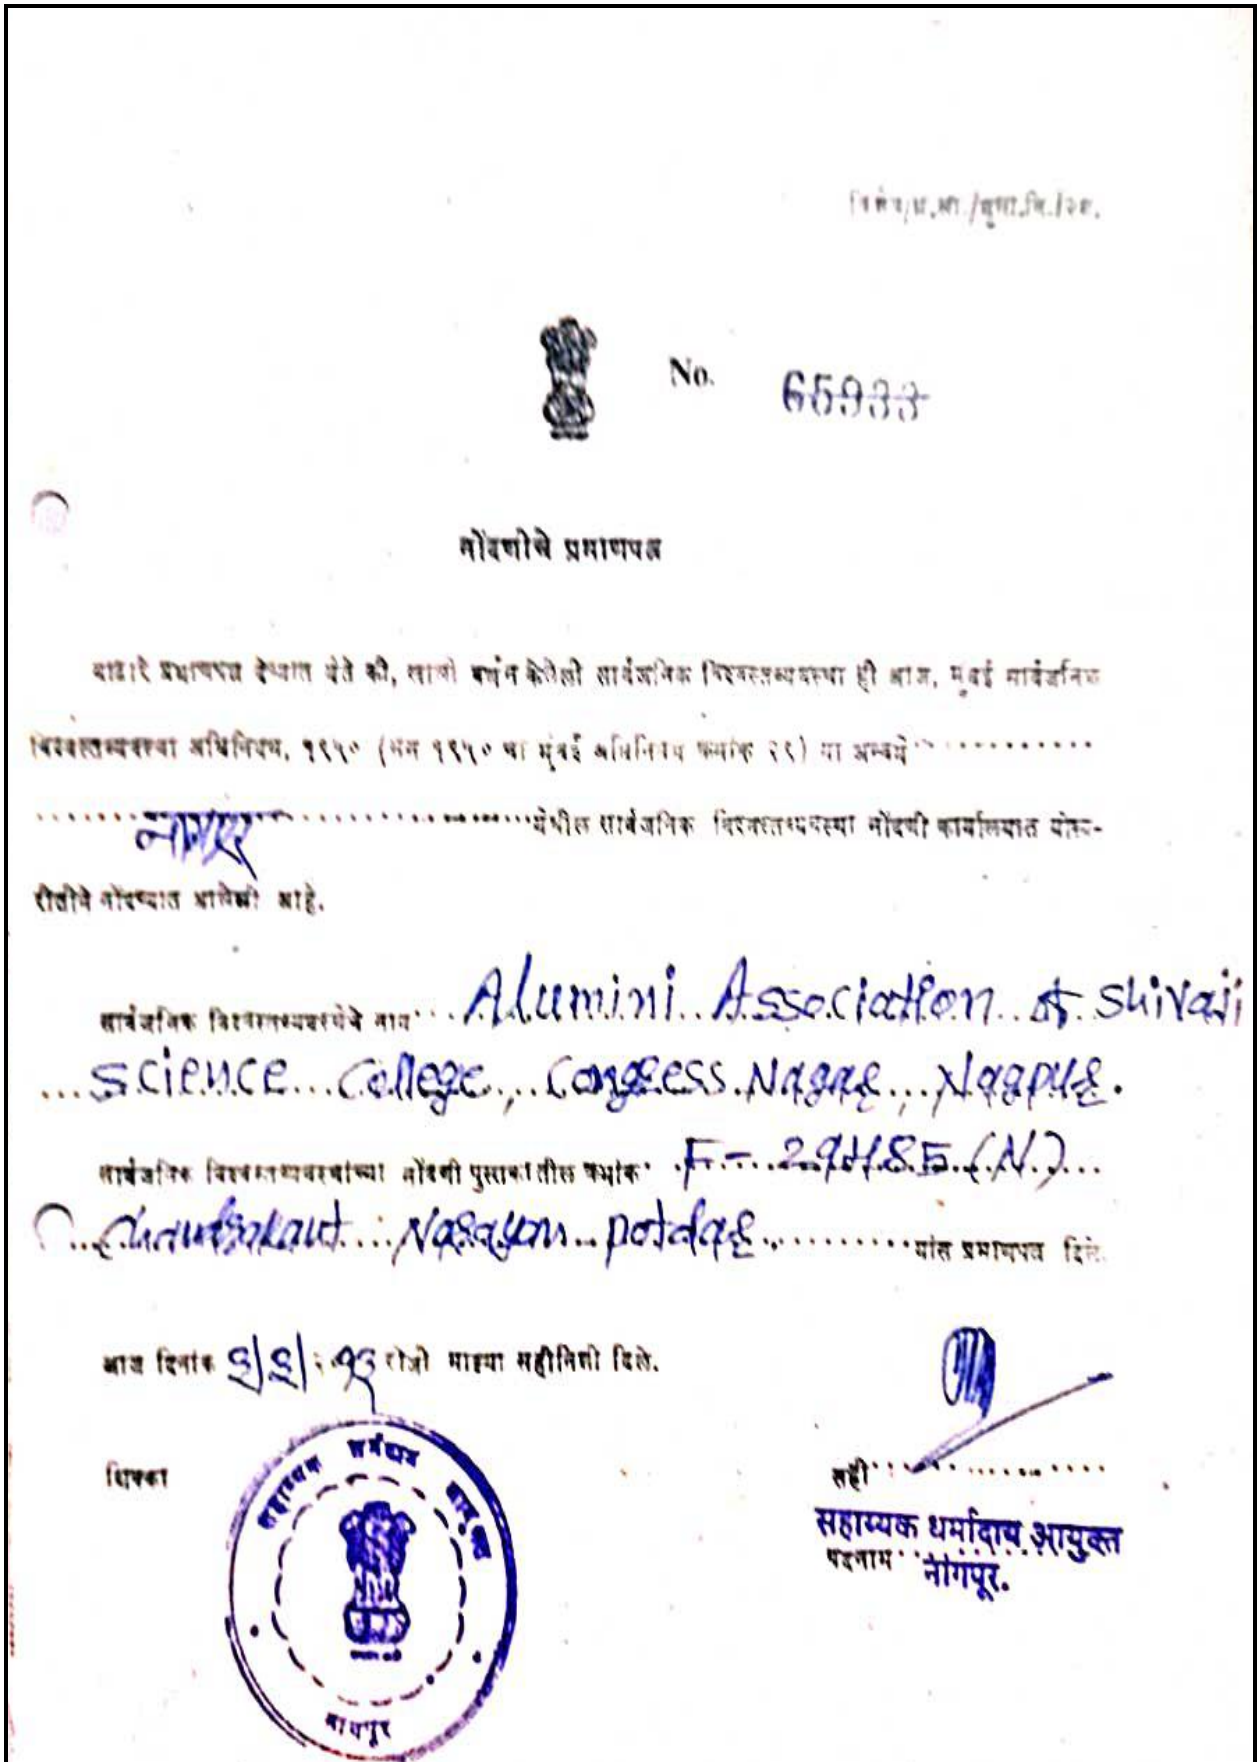 No. 65933
नोंदणीचे प्रमाणपत्र
याद्वारे प्रमाणपत्र देण्यात येते की, खाली वर्णन केलेली सार्वजनिक विश्वस्तव्यवस्था ही आज, मुंबई सार्वजनिक
विश्वस्तव्यवस्था अधिनियम, १९५० (सन १९५० चा मुंबई अधिनियम क्रमांक २९) या अन्वये
नागपूर येथील सार्वजनिक विश्वस्तव्यवस्था नोंदणी कार्यालयात योग्य-
रीतीने नोंदण्यात आलेली आहे.
सार्वजनिक विश्वस्तव्यवस्थेचे नाव Alumini Association of Shivaji
Science College, Congress Nagar, Nagpur.
सार्वजनिक विश्वस्तव्यवस्थांच्या नोंदणी पुस्तकातील क्रमांक F-29485 (N)
Chandrakant Narayan potdar यांस प्रमाणपत्र दिले.
आज दिनांक रोजी माझ्या सहीनिशी दिले.
शिक्का
सहाय्यक धर्मादाय आयुक्त
नागपूर
सही
सहाय्यक धर्मादाय आयुक्त
पदनाम नागपूर.